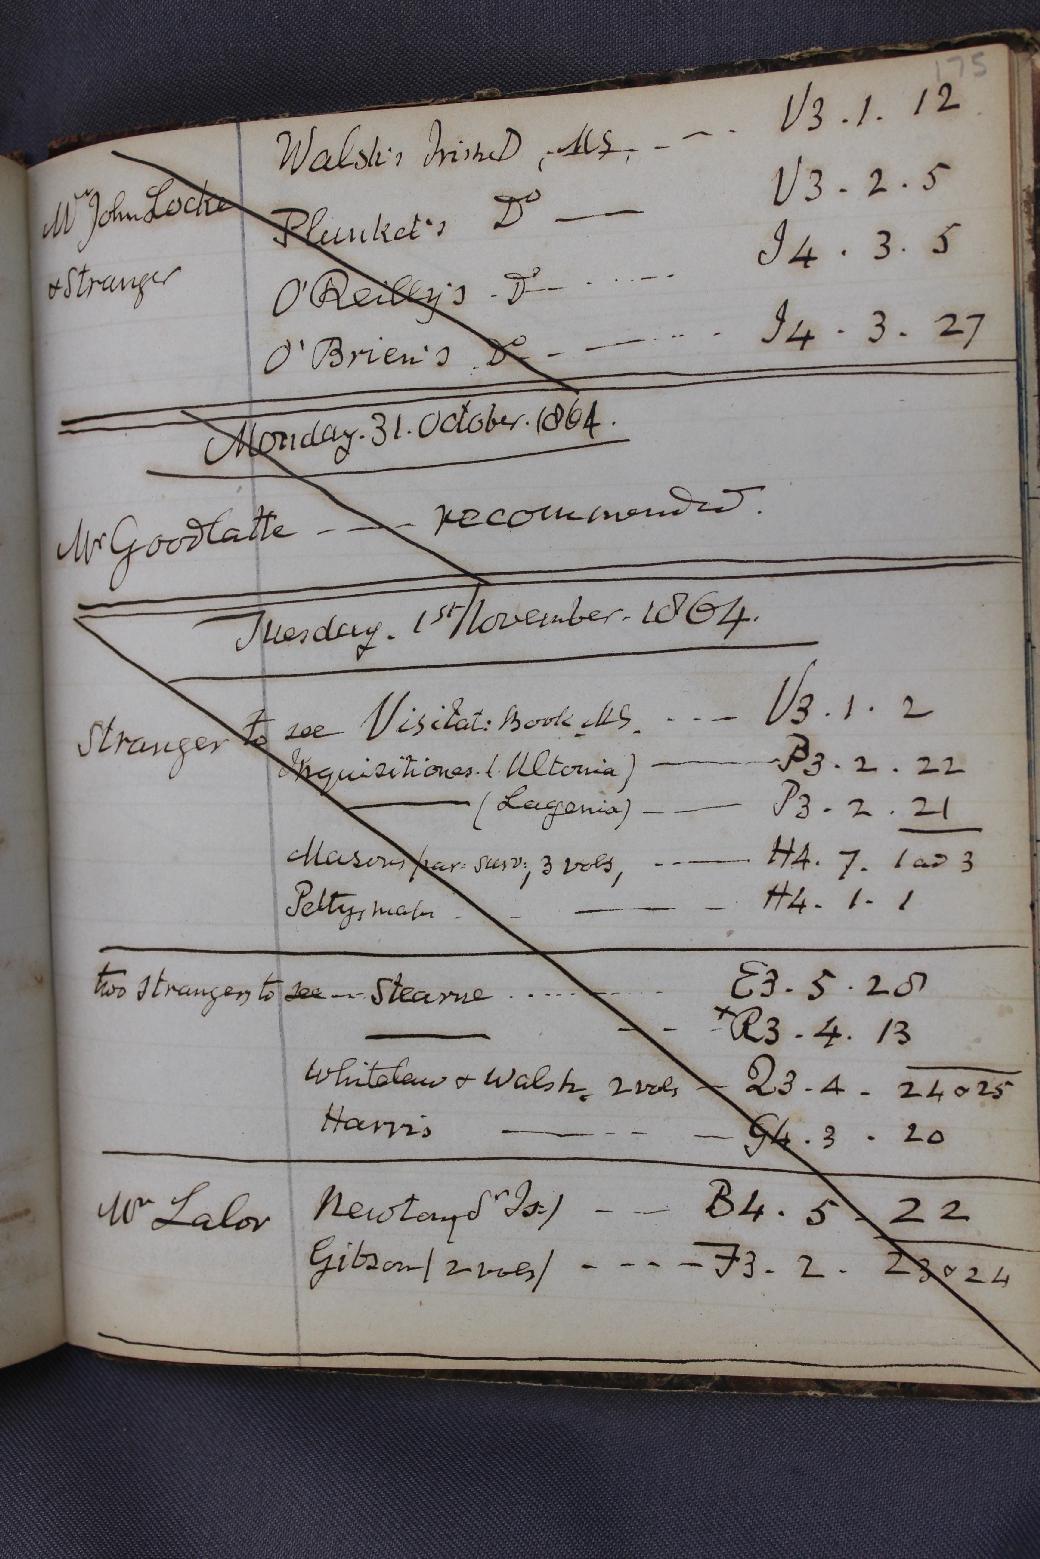 175
Walsh's Irish D , MS, - - - V3 . 1 . 12
Mr John Locke Plunket's Do — V3 - 2 . 5
& Stranger O'Reilly's - Do - - - - - J4 . 3 . 5
O'Brien's Do - - — - - - J4 . 3 . 27
Monday . 31 . October . 1864 .
Mr Goodlatte - — — recommended .
Tuesday . 1st November . 1864 .
Stranger to see Visitat: Book MS. - - - - V3 . 1 . 2
Inquisitiones . ( Ultonia ) — P3 - 2 . 22
— ( Lagenia ) - — P3 - 2 . 21
Masons par: surv:, 3 vols, - - - — H4 . 7 . 1 ad 3
Pettys maps - - — - H4 - 1 - 1
two strangers to see — Stearne . . . . . . . . E3 - 5 . 28
— - - - xR3 - 4 . 13
Whitelaw & Walsh, 2 vols — Q3 - 4 - 24 & 25
Harris — - - — G4 . 3 . 20
Mr Lalor Newton, Sr Is:) - - — B4 . 5 - 22
Gibson / 2 vols / - - - - F3 - 2 - 23 & 24